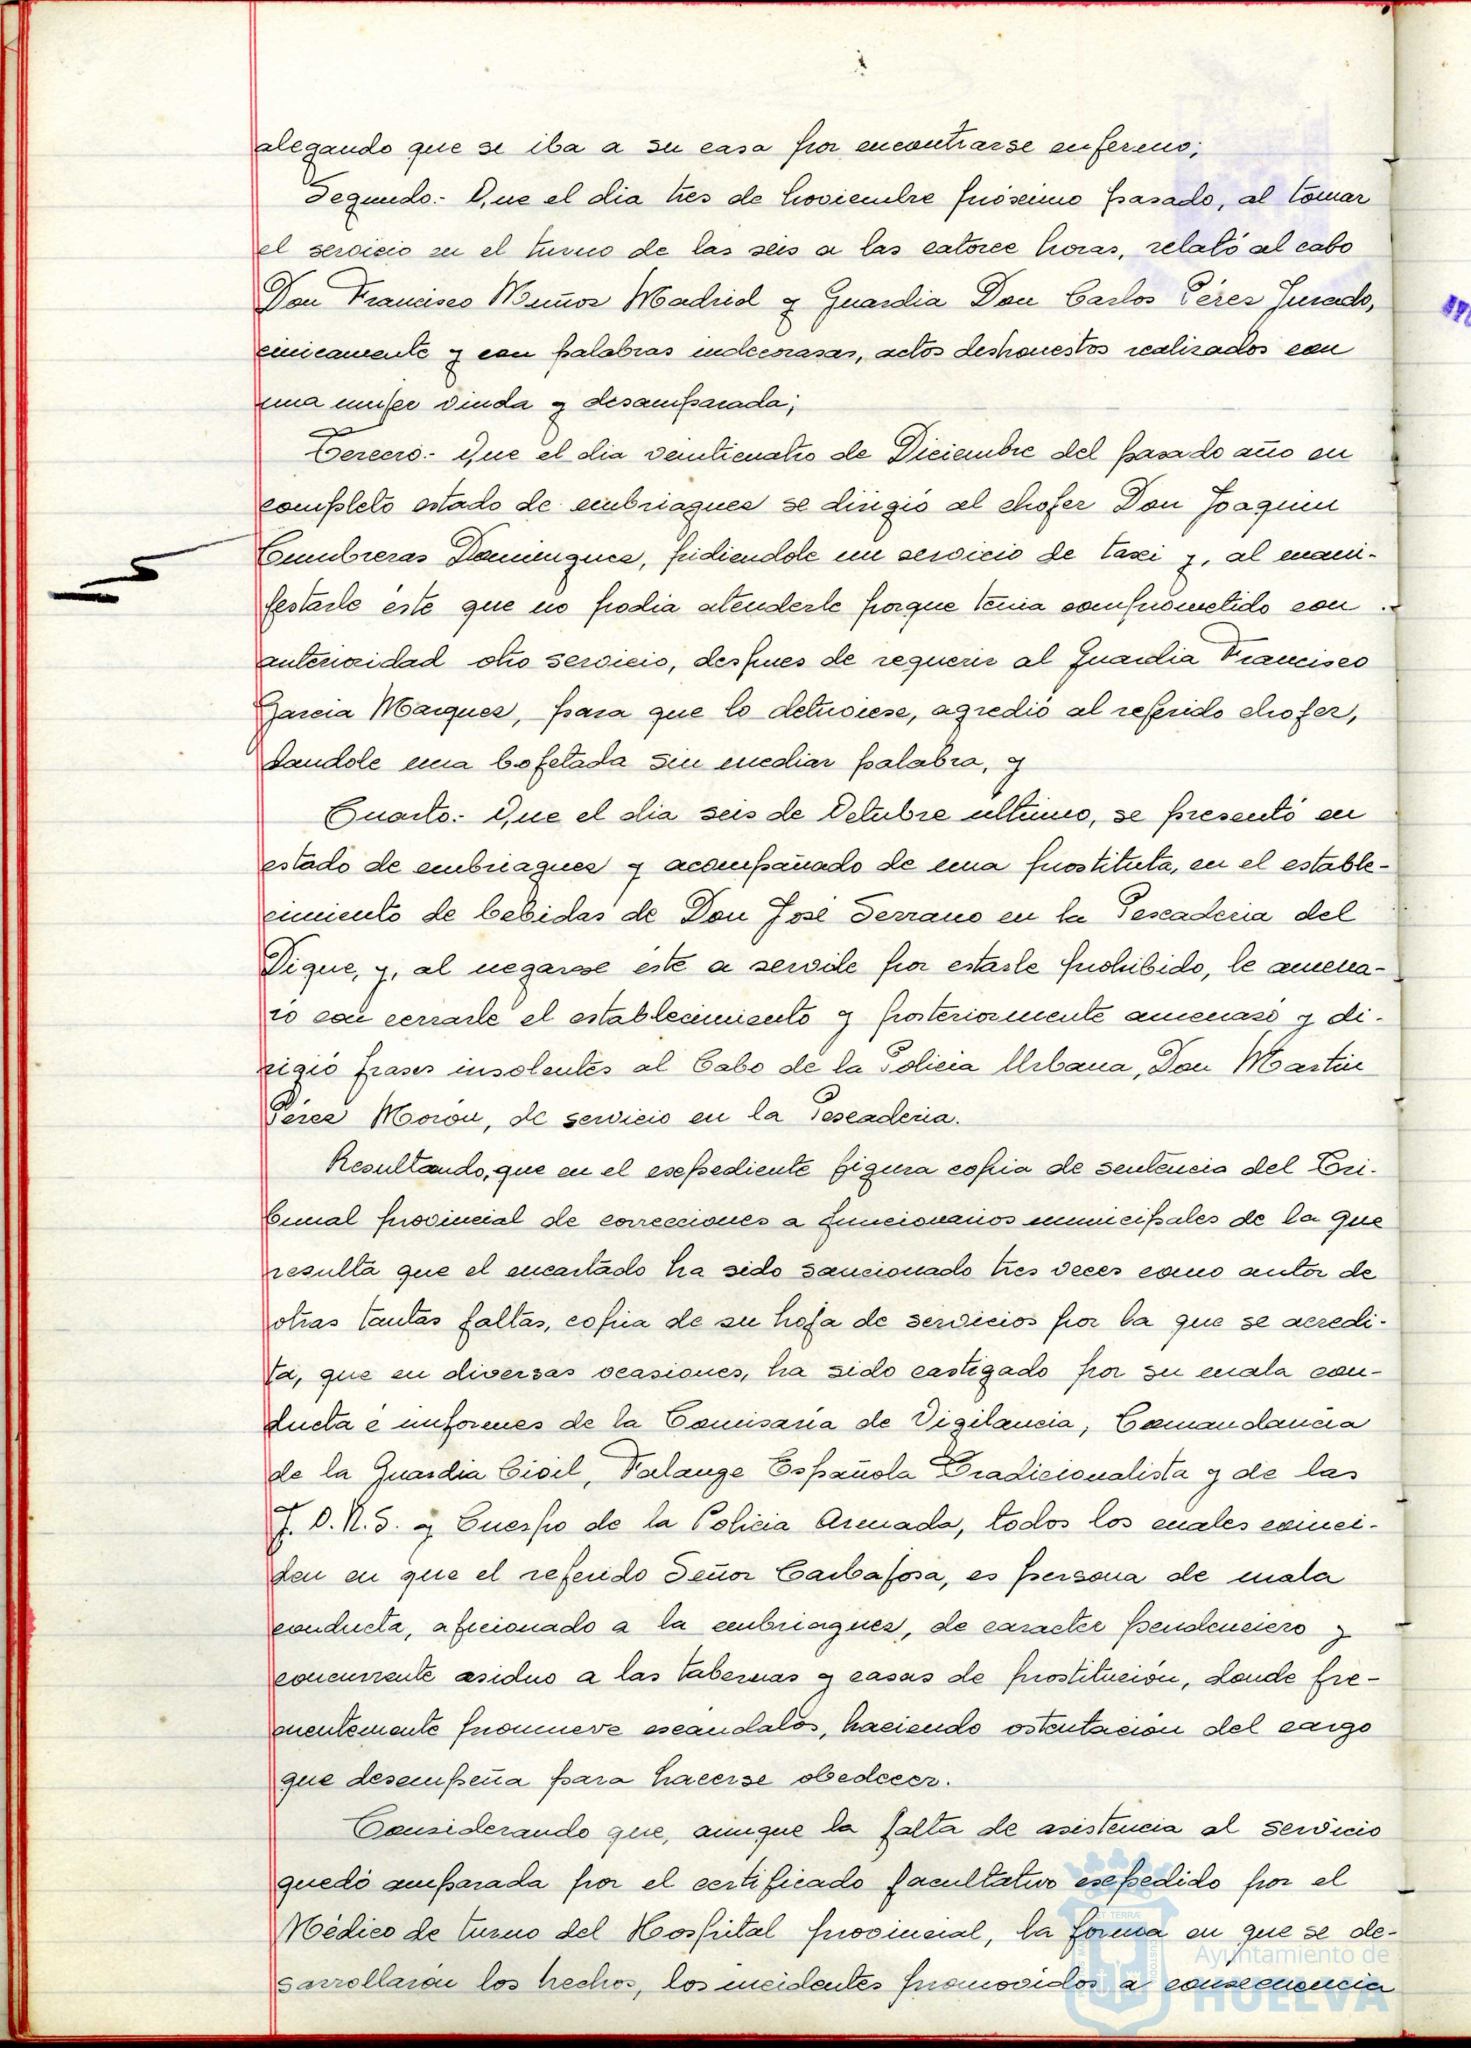 alegando que se iba a su casa por encontrarse enfermo;
Segundo.- Que el dia tres de Noviembre próximo pasado, al tomar
el servicio en el turno de las seis a las catorce horas, relató al cabo
Don Francisco Muñoz Madrid y Guardia Don Carlos Pérez Jurado,
cinicamente y con palabras indecorosas, actos deshonestos realizados con
una mujer viuda y desamparada;
Tercero.- Que el dia veinticuatro de Diciembre del pasado año en
completo estado de embriaguez se dirigió al chofer Don Joaquin
Cumbreras Dominguez, pidiendole un servicio de taxi y, al mani-
festarle éste que no podia atenderle porque tenia comprometido con
anterioridad otro servicio, despues de requerir al Guardia Francisco
Garcia Marquez, para que lo detuviese, agredió al referido chofer,
dandole una bofetada sin mediar palabra, y
Cuarto.- Que el dia seis de Octubre ultimo, se presentó en
estado de embriaguez y acompañado de una prostituta, en el estable-
cimiento de bebidas de Don José Serrano en la Pescaderia del
Dique, y, al negarse éste a servile por estarle prohibido, le amena-
zó con cerrarle el establecimiento y posteriormente amenazó y di-
rigió frases insolentes al Cabo de la Policia Urbana, Don Martin
Pérez Morón, de servicio en la Pescaderia.
Resultando, que en el expediente figura copia de sentencia del Tri-
bunal provincial de correcciones a funcionarios municipales de la que
resulta que el encartado ha sido sancionado tres veces como autor de
otras tantas faltas, copia de su hoja de servicios por la que se acredi-
ta, que en diversas ocasiones, ha sido castigado por su mala con-
ducta é informes de la Comisaría de Vigilancia, Comandancia
de la Guardia Civil, Falange Española Tradicionalista y de las
J.O.N.S. y Cuerpo de la Policia Armada, todos los cuales coinci-
den en que el referido Señor Carbajosa, es persona de mala
conducta, aficionado a la embriaguez, de caracter pendenciero y
concurrente asiduo a las tabernas y casas de prostitución, donde fre-
cuentemente promueve escandalos, haciendo ostentación del cargo
que desempeña para hacerse obedecer.
Considerando que, aunque la falta de asistencia al servicio
quedó amparada por el certificado facultativo expedido por el
Médico de turno del Hospital provincial, la forma en que se de-
sarrollaron los hechos, los incidentes promovidos a consecuencia
Ayuntamiento de
HUELVA